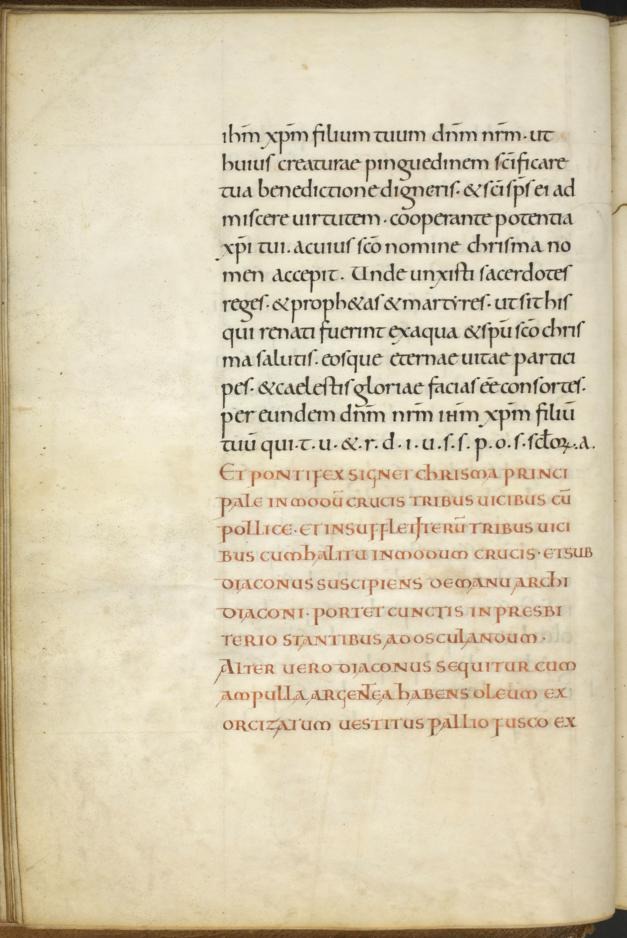 ihm̅ xp̅m filium tuum dn̅m nr̅m · ut
huius creaturae pinguedinem sc̅ificare
tua benedictione digneris · & sc̅i sp̅s ei ad
miscere uirtutem · cooperante potentia
xp̅i tui · a cuius sc̅o nomine chrisma no
men accepit · Unde unxisti sacerdotes
reges · & proph&as & martyres · ut sit his
qui renati fuerint ex aqua & sp̅u sc̅o chris
ma salutis · eosque eternae uitae partici
pes · & caelestis gloriae facias ee̅ consortes ·
per eundem dn̅m nr̅m ihm̅ xp̅m filiū
tuū qui · t · u · & · r · d · i · u · s · s · p · o · s · scl̅oꝝ · a ·
ET PONTIFEX SIGNET CHRISMA PRINCI
PALE IN MODŪ CRUCIS TRIBUS UICIBUS CŪ
POLLICE · ET INSUFFLET ITERŪ TRIBUS UICI
BUS CUM HALITU IN MODUM CRUCIS · ET SUB
DIACONUS SUSCIPIENS DE MANU ARCHI
DIACONI · PORTET CUNCTIS IN PRESBI
TERIO STANTIBUS AD OSCULANDUM ·
ALTER UERO DIACONUS SEQUITUR CUM
AMPULLA ARGENTEA HABENS OLEUM EX
ORCIZATUM UESTITUS PALLIO FUSCO EX